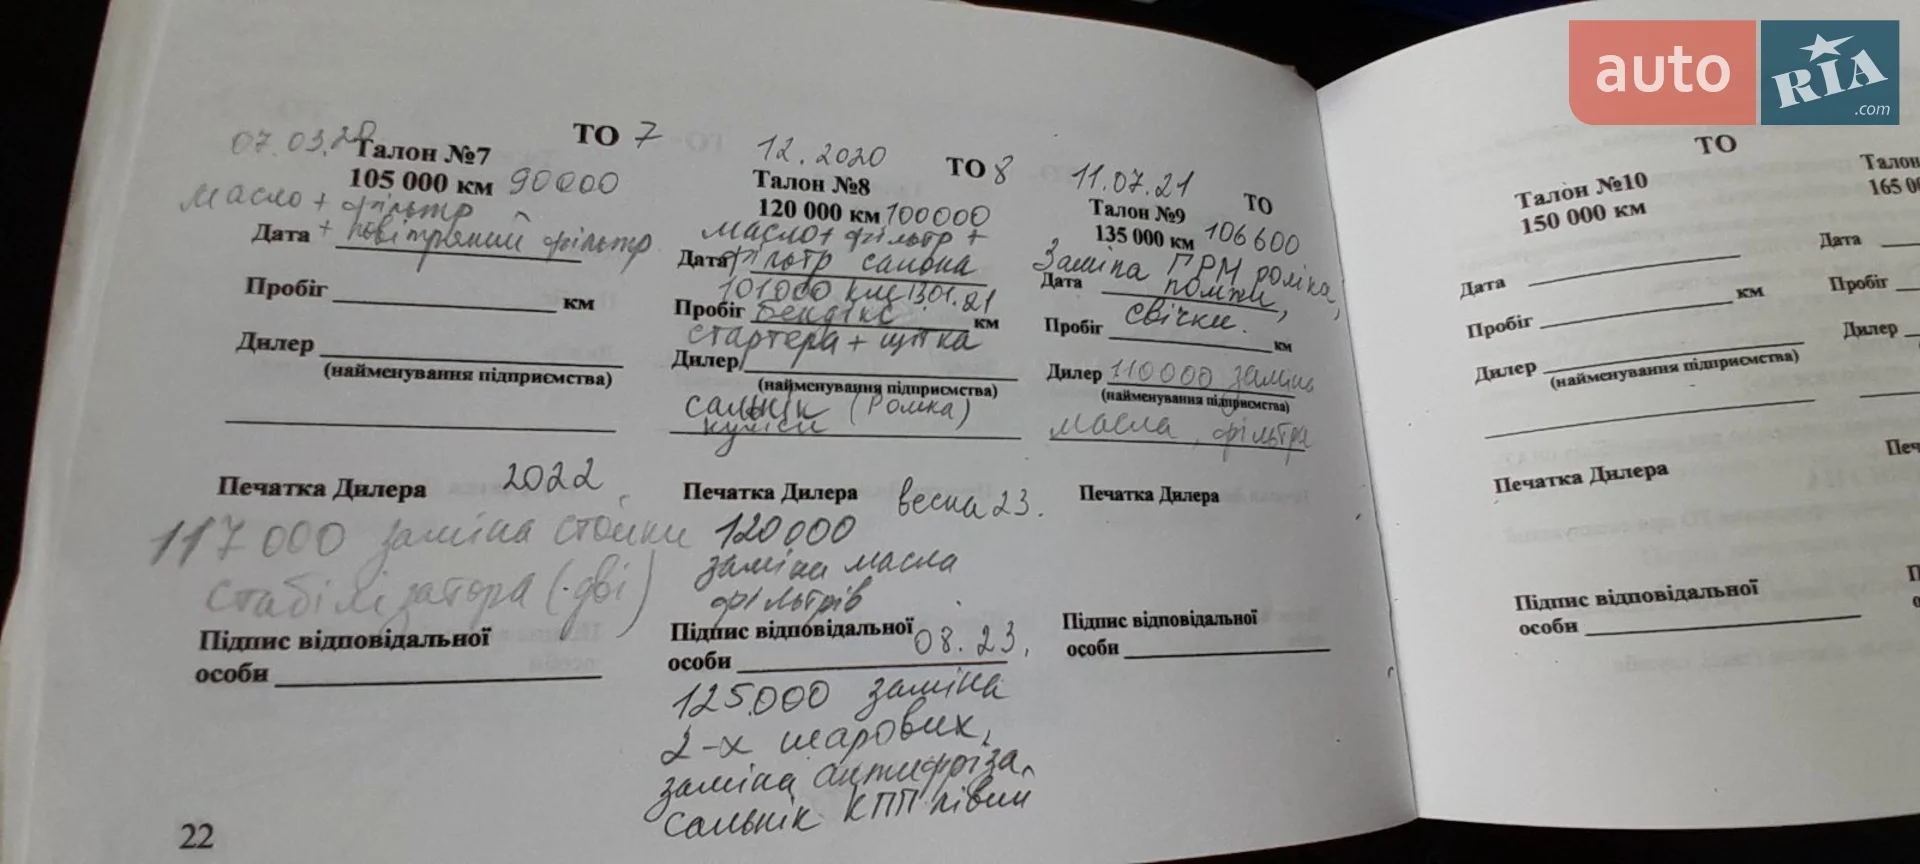 auto RIA .com
ТО 7
07.03.20
Талон №7
105 000 км 90000
Масло + фільтр
Дата + повітряний фільтр
Пробіг км
Дилер
(найменування підприємства)
Печатка Дилера 2022
117 000 заміна стойки
стабілізатора (дві)
Підпис відповідальної
особи
22
12.2020
ТО 8
Талон №8
120 000 км 100000
масло + фільтр +
Дата фільтр салона
101000 км 1301.21
Пробіг Бендікс км
стартера + щітка
Дилер
(найменування підприємства)
сальнік (Ромка)
куліси
Печатка Дилера весна 23.
120000
заміна масла
фільтрів
Підпис відповідальної
особи 08.23.
125.000 заміна
2-х шарових,
заміна антифріза,
сальнік КПП лівий
11.07.21
ТО
Талон №9
135 000 км 106600
Заміна ГРМ роліка,
Дата помпи,
Пробіг свічки. км
Дилер 110000 заміна
(найменування підприємства)
масла, фільтра
Печатка Дилера
Підпис відповідальної
особи
ТО
Талон №10
150 000 км
Дата
Пробіг км
Дилер
(найменування підприємства)
Печатка Дилера
Підпис відповідальної
особи
Талон
165 0
Дата
Пробіг
Дилер